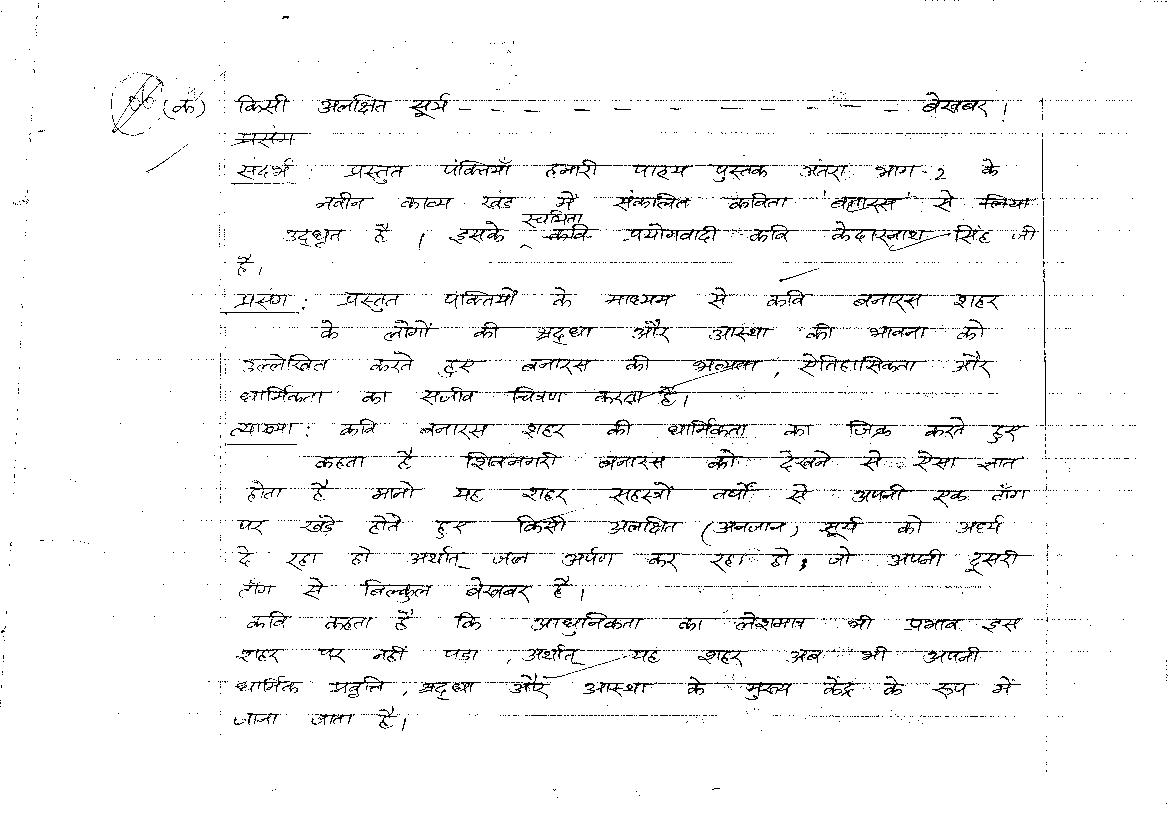 (क) किसी अलक्षित सूर्य - - - - - - - - - - - - बेखबर।
प्रसंग
संदर्भ : प्रस्तुत पंक्तियाँ हमारी पाठ्य पुस्तक अंतरा भाग-2 के
नवीन काव्य खंड में संकलित कविता 'बनारस' से लिया
उद्धृत है। इसके रचयिता कवि प्रयोगवादी कवि केदारनाथ सिंह जी
है।
प्रसंग : प्रस्तुत पंक्तियों के माध्यम से कवि बनारस शहर
के लोगों की श्रद्धा और आस्था की भावना को
उल्लेखित करते हुए बनारस की भव्यता, ऐतिहासिकता और
धार्मिकता का सजीव चित्रण करता है।
व्याख्या : कवि बनारस शहर की धार्मिकता का जिक्र करते हुए
कहता है शिवनगरी बनारस को देखने से ऐसा ज्ञात
होता है मानो यह शहर सहस्त्रों वर्षों से अपनी एक टाँग
पर खड़े होते हुए किसी अलक्षित (अनजान) सूर्य को अर्ध्य
दे रहा हो अर्थात् जल अर्पण कर रहा हो, जो अपनी दूसरी
टाँग से बिल्कुल बेखबर है।
कवि कहता है कि आधुनिकता का लेशमात्र भी प्रभाव इस
शहर पर नहीं पड़ा, अर्थात् यह शहर अब भी अपनी
धार्मिक प्रवृत्ति, श्रद्धा और आस्था के मुख्य केंद्र के रूप में
जाना जाता है।